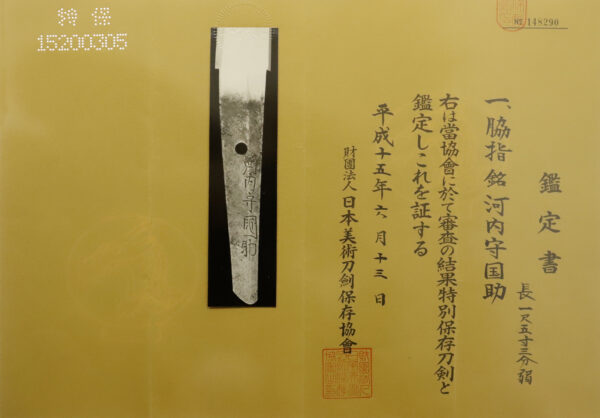 № 148290
鑑定書
一、脇指 銘 河内守国助
長一尺五寸三分弱
右は當協會に於て審査の結果特別保存刀剣と
鑑定しこれを証する
平成十五年六月十三日
財團法人日本美術刀劍保存協會
特保
15200305
河内守國助